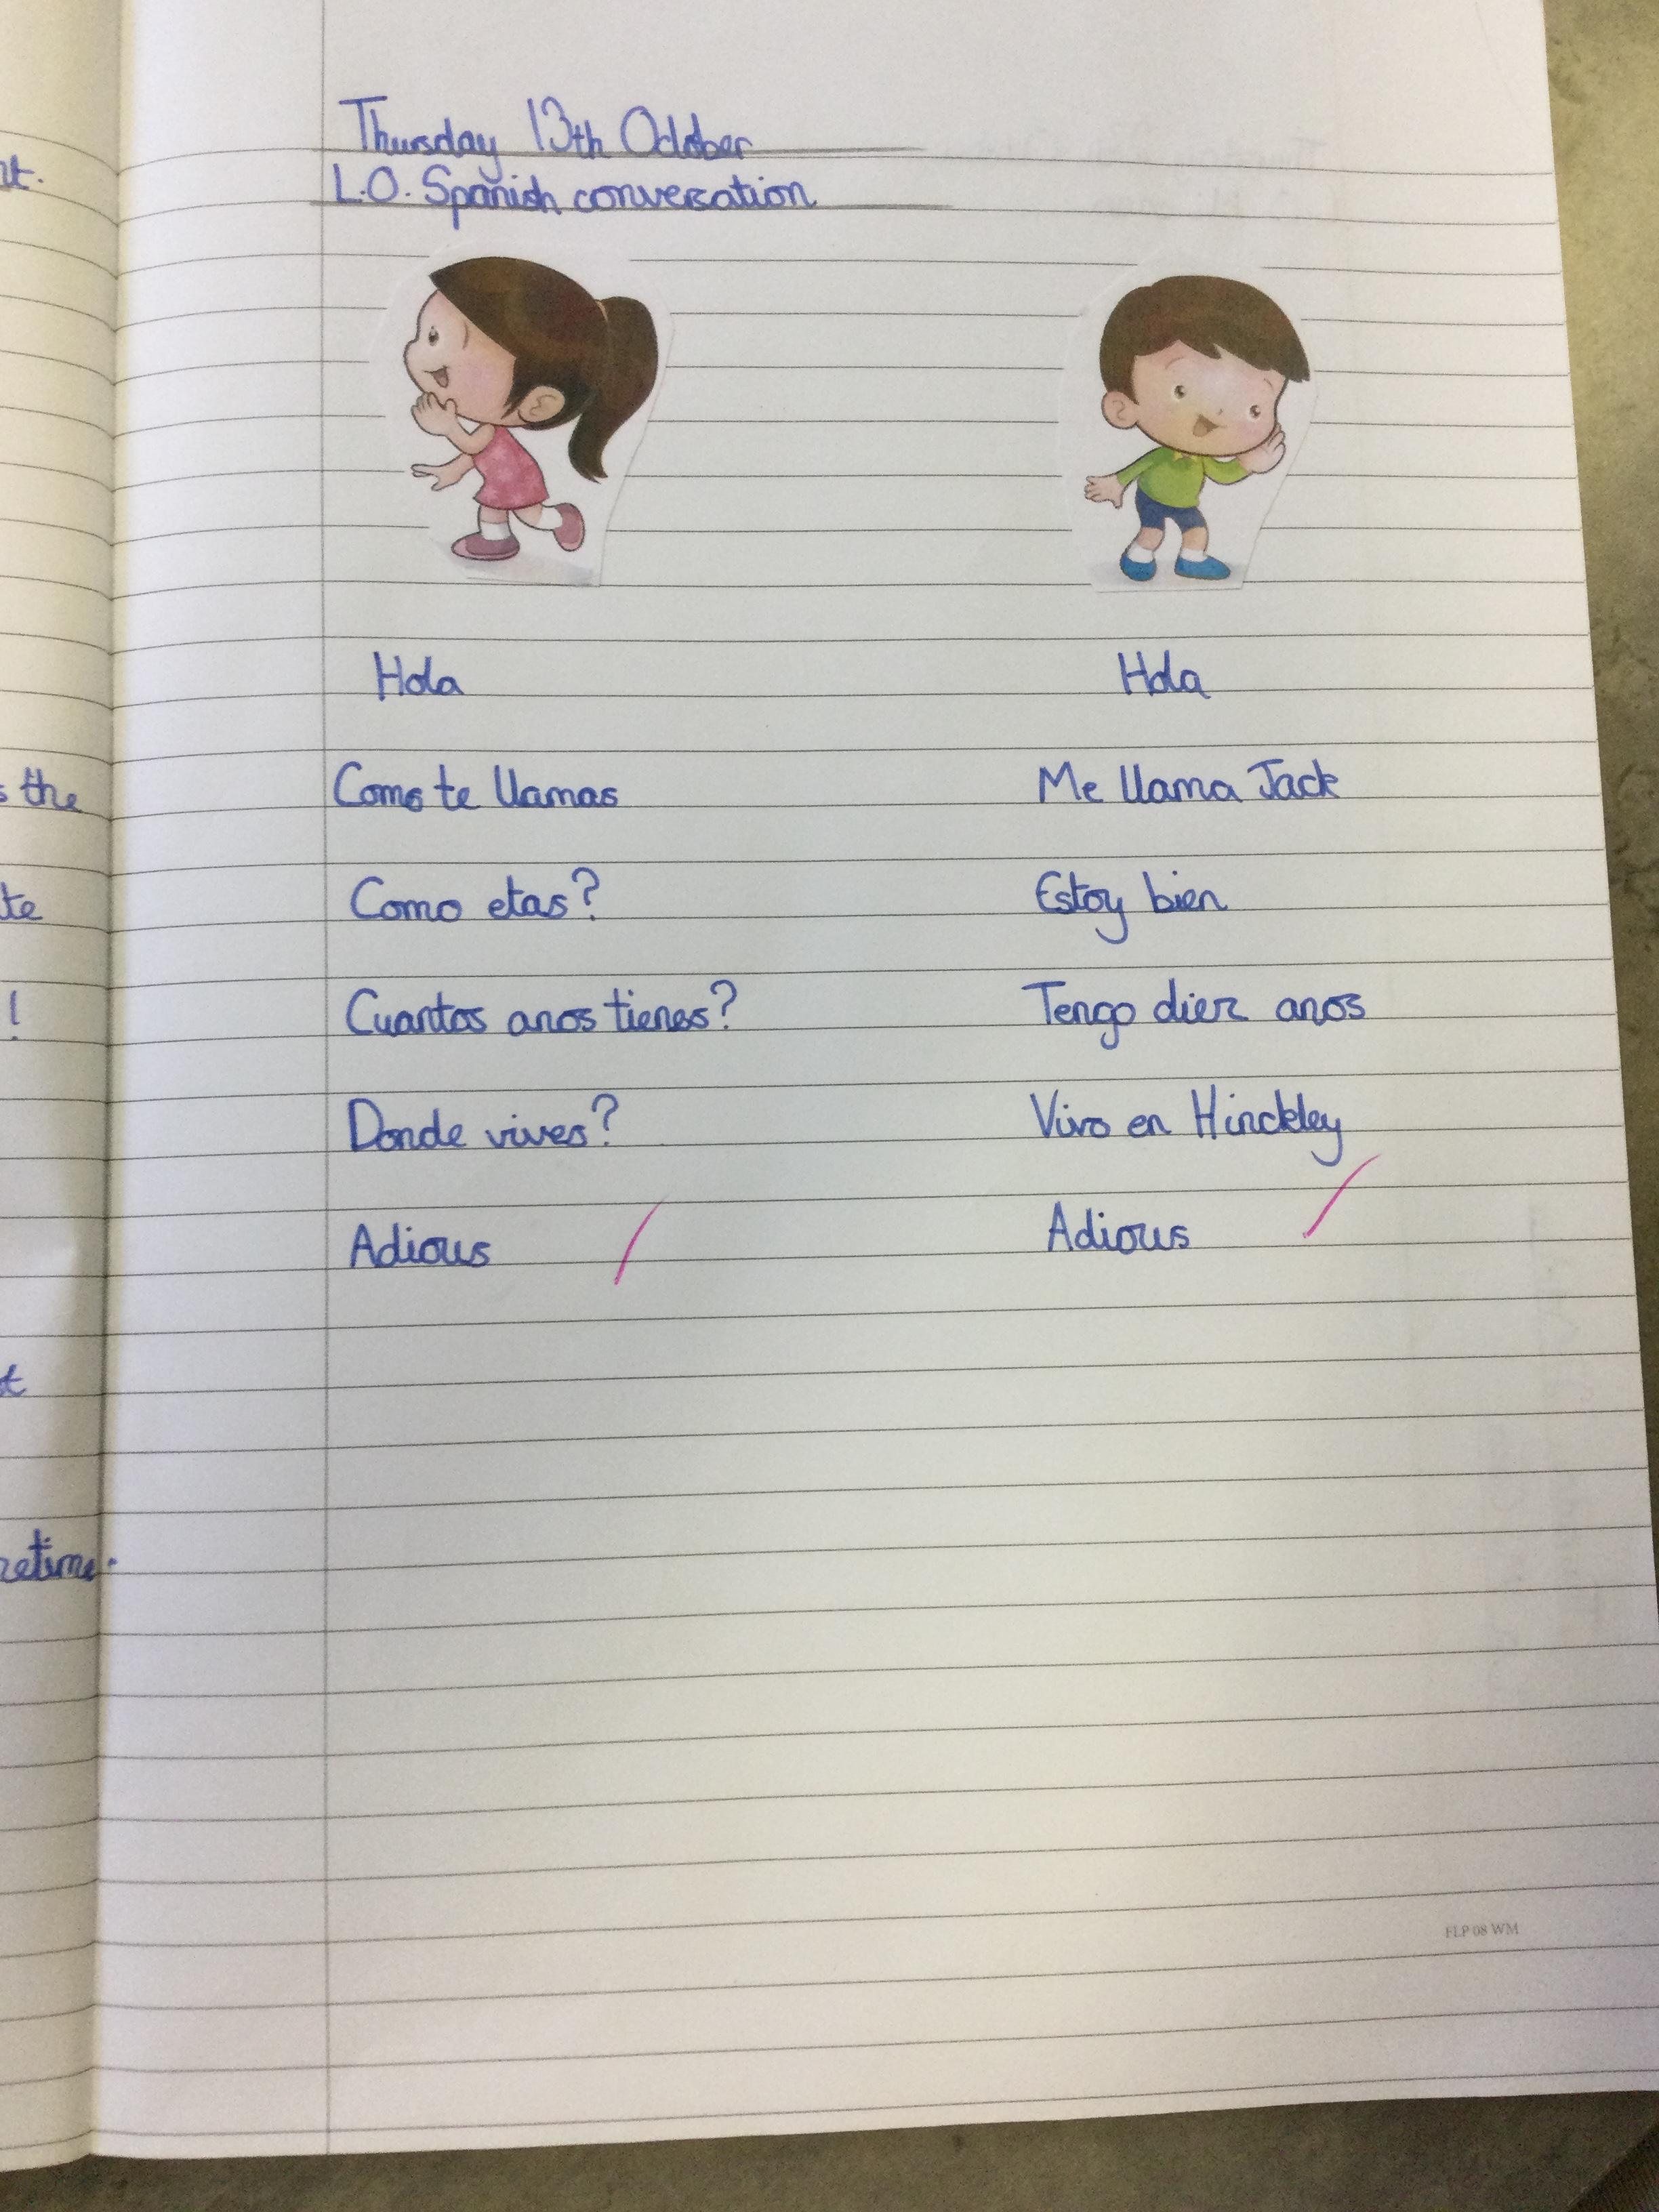 Thursday 13th October
L.O. Spanish conversation
Hola Hola
Como te llamas Me llama Jack
Como etas? Estoy bien
Cuantos anos tienes? Tengo diez anos
Donde vives? Vivo en Hinckley
Adious Adious
the
te
!
FLP 08 WM